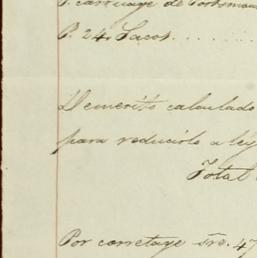 P. carruage de Portsmou
P. 24. Sacos . . . . .
Demerito calculado
para reducirlo a ley
Total
Por corretaje